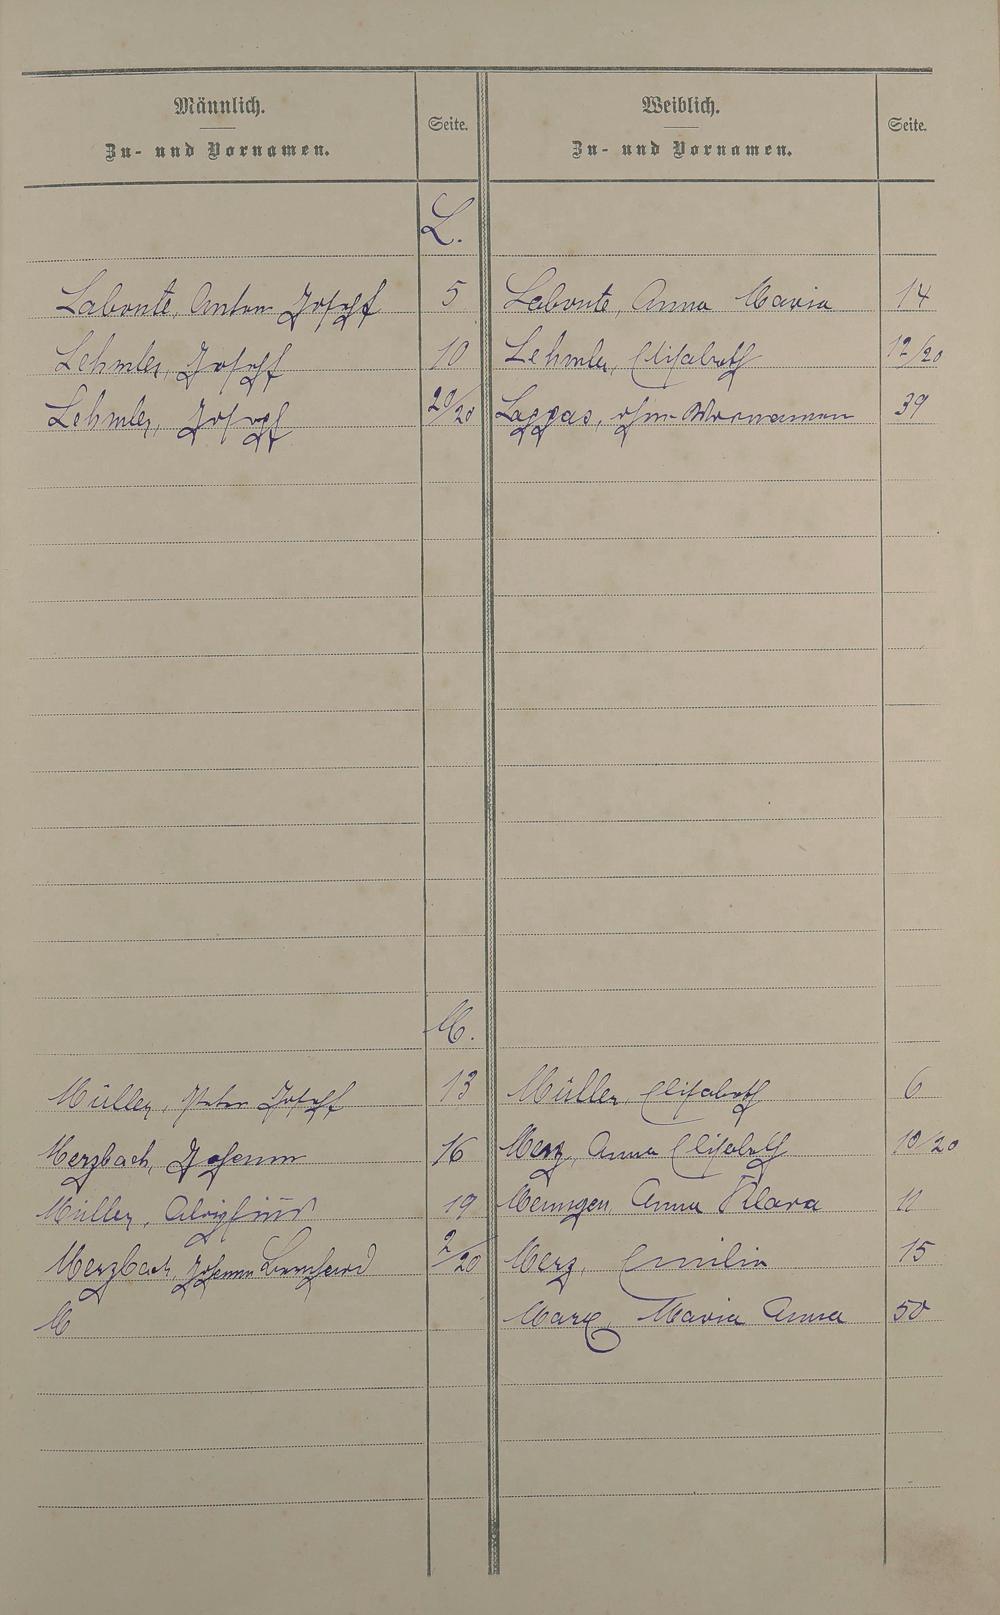 Männlich.
Zu- und Vornamen.
Seite.
Weiblich.
Zu- und Vornamen.
Seite.
L.
Labonte, Anton Joseph 5 Labonte, Anna Maria 14
Lehmler, Joseph 10 Lehmler, Elisabeth 12/20
Lehmler, Joseph 20/20 Lappas, ohne Vornamen 39
M.
Müller, Peter Joseph 13 Müller, Elisabeth 6
Merzbach, Johann 16 Merz, Anna Elisabeth 10/20
Müller, Aloysius 19 Menngen, Anna Klara 11
Merzbach, Johann Bernhard 2/20 Merz, Emilie 15
M Marx, Maria Anna 50